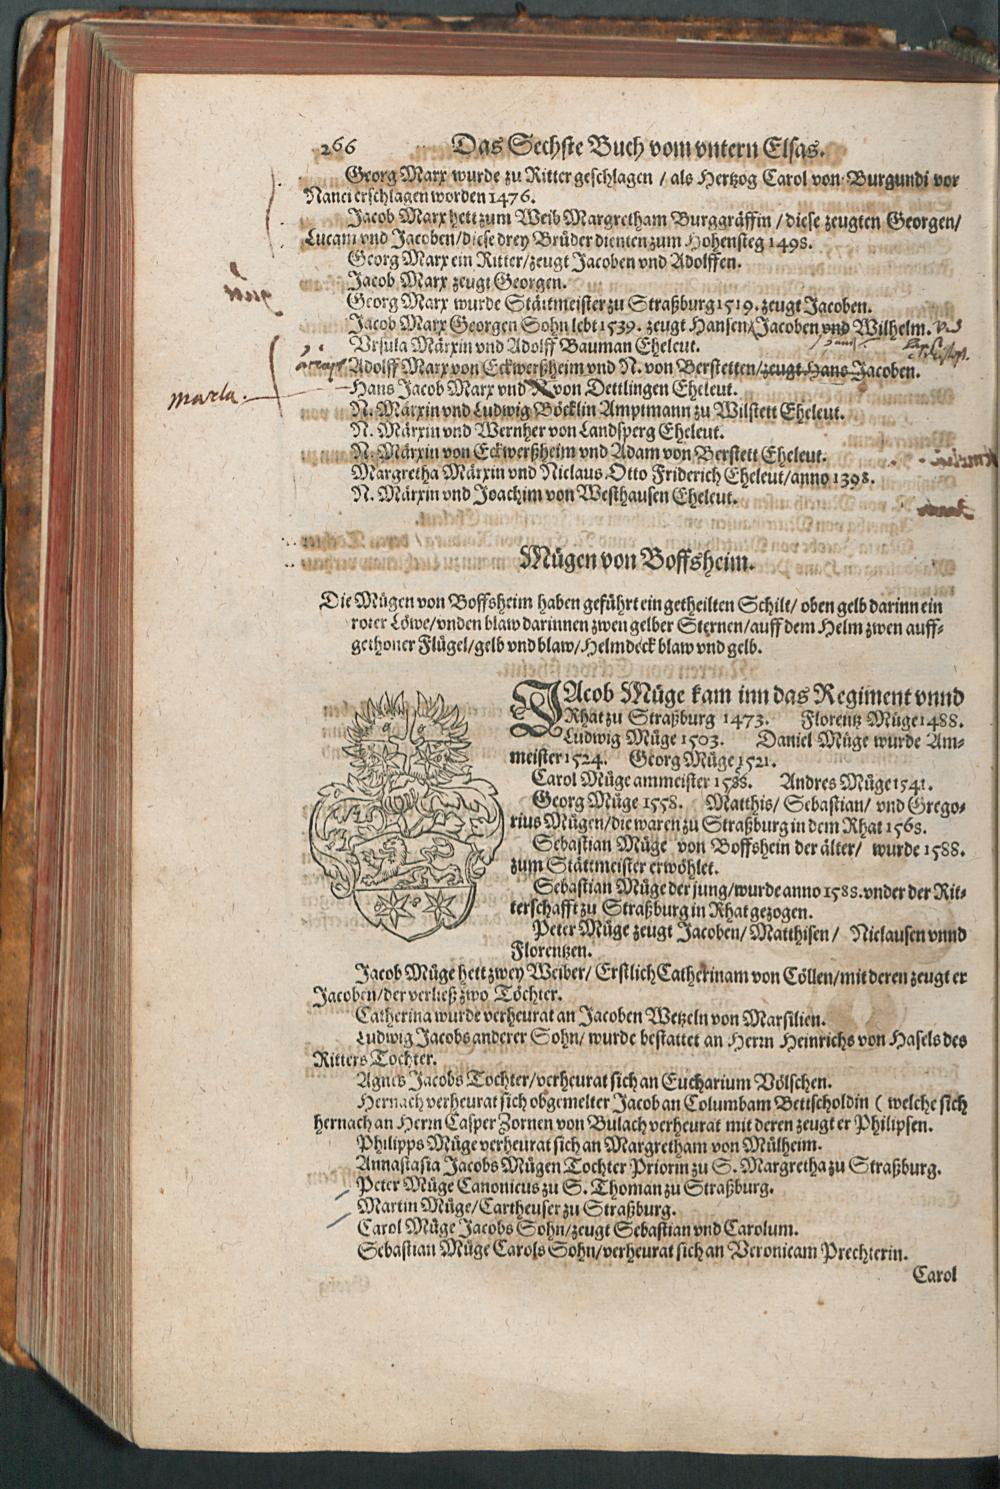 266 Das Sechste Buch vom vntern Elsas.
Georg Marx wurde zu Ritter geschlagen / als Hertzog Carol von Burgundi vor
Nanci erschlagen worden 1476.
Jacob Marx hett zum Weib Margretham Burggräffin / diese zeugten Georgen/
Lucam vnd Jacoben/diese drey Brüder dienten zum Hohensteg 1498.
Georg Marx ein Ritter/zeugt Jacoben vnd Adolffen.
Jacob Marx zeugt Georgen.
Georg Marx wurde Stättmeister zu Straßburg 1519. zeugt Jacoben.
Jacob Marx Georgen Sohn lebt 1539. zeugt Hansen/Jacoben vnd Wilhelm. vnd
Vrsula Märxin vnd Adolff Bauman Eheleut.
Adolff Marx von Eckwerßheim vnd N. von Berstetten/zeugt Hans Jacoben.
marla.
Hans Jacob Marx vnd N. von Dettlingen Eheleut.
N. Märxin vnd Ludwig Böcklin Amptmann zu Wilstett Eheleut.
N. Märxin vnd Wernher von Landsperg Eheleut.
N. Märxin von Eckwerßheim vnd Adam von Berstett Eheleut.
Margretha Märxin vnd Niclaus Otto Friderich Eheleut/anno 1398.
N. Märxin vnd Joachim von Westhausen Eheleut.
Mügen von Boffsheim.
Die Mügen von Boffsheim haben geführt ein getheilten Schilt/ oben gelb darinn ein
roter Löwe/vnden blaw darinnen zwen gelber Sternen/auff dem Helm zwen auff-
gethoner Flügel/gelb vnd blaw/Helmdeck blaw vnd gelb.
JAcob Müge kam inn das Regiment vnnd
Rhat zu Straßburg 1473. Florentz Müge 1488.
Ludwig Müge 1503. Daniel Müge wurde Am-
meister 1524. Georg Müge 1521.
Carol Müge ammeister 1588. Andres Müge 1541.
Georg Müge 1558. Matthis/ Sebastian/ vnd Grego-
rius Mügen/die waren zu Straßburg in dem Rhat 1568.
Sebastian Müge von Boffshein der älter/ wurde 1588.
zum Stättmeister erwöhlet.
Sebastian Müge der jung/wurde anno 1588. vnder der Rit-
terschafft zu Straßburg in Rhat gezogen.
Peter Müge zeugt Jacoben/ Matthisen/ Niclausen vnnd
Florentzen.
Jacob Müge hett zwey Weiber/ Erstlich Catherinam von Cöllen/mit deren zeugt er
Jacoben/der verließ zwo Töchter.
Catherina wurde verheurat an Jacoben Wetzeln von Marsilien.
Ludwig Jacobs anderer Sohn/ wurde bestattet an Herrn Heinrichs von Hasels des
Ritters Tochter.
Agnes Jacobs Tochter/verheurat sich an Eucharium Völschen.
Hernach verheurat sich obgemelter Jacob an Columbam Bettscholdin ( welche sich
hernach an Herrn Casper Zornen von Bulach verheurat mit deren zeugt er Philipsen.
Philipps Müge verheurat sich an Margretham von Mülheim.
Annastasia Jacobs Mügen Tochter Priorin zu S. Margretha zu Straßburg.
Peter Müge Canonicus zu S. Thoman zu Straßburg.
Martin Müge/Cartheuser zu Straßburg.
Carol Müge Jacobs Sohn/zeugt Sebastian vnd Carolum.
Sebastian Müge Carols Sohn/verheurat sich an Veronicam Prechterin.
Carol